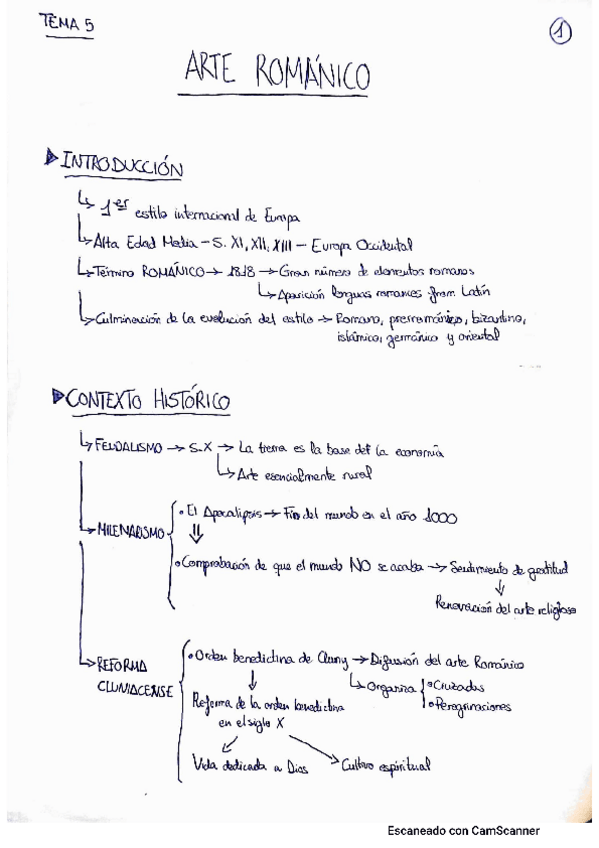 TEMA 5
1
ARTE ROMÁNICO
INTRODUCCIÓN
1er estilo internacional de Europa
Alta Edad Media - S. XI, XII, XIII - Europa Occidental
Término ROMÁNICO → 1818 → Gran número de elementos romanos
Aparición lenguas romances from Latín
Culminación de la evolución del estilo → Romano, prerrománico, bizantino,
islámico, germánico y oriental
CONTEXTO HISTÓRICO
FEUDALISMO → S. X → La tierra es la base de la economía
Arte esencialmente rural
MILENARISMO
• El Apocalipsis → Fin del mundo en el año 1000
• Comprobación de que el mundo NO se acaba → Sentimiento de gratitud
Renovación del arte religioso
REFORMA
CLUNIACENSE
• Orden benedictina de Cluny → Difusión del arte Románico
Organiza
• Cruzadas
• Peregrinaciones
Reforma de la orden benedictina
en el siglo X
Vida dedicada a Dios
Cultivo espiritual
Escaneado con CamScanner